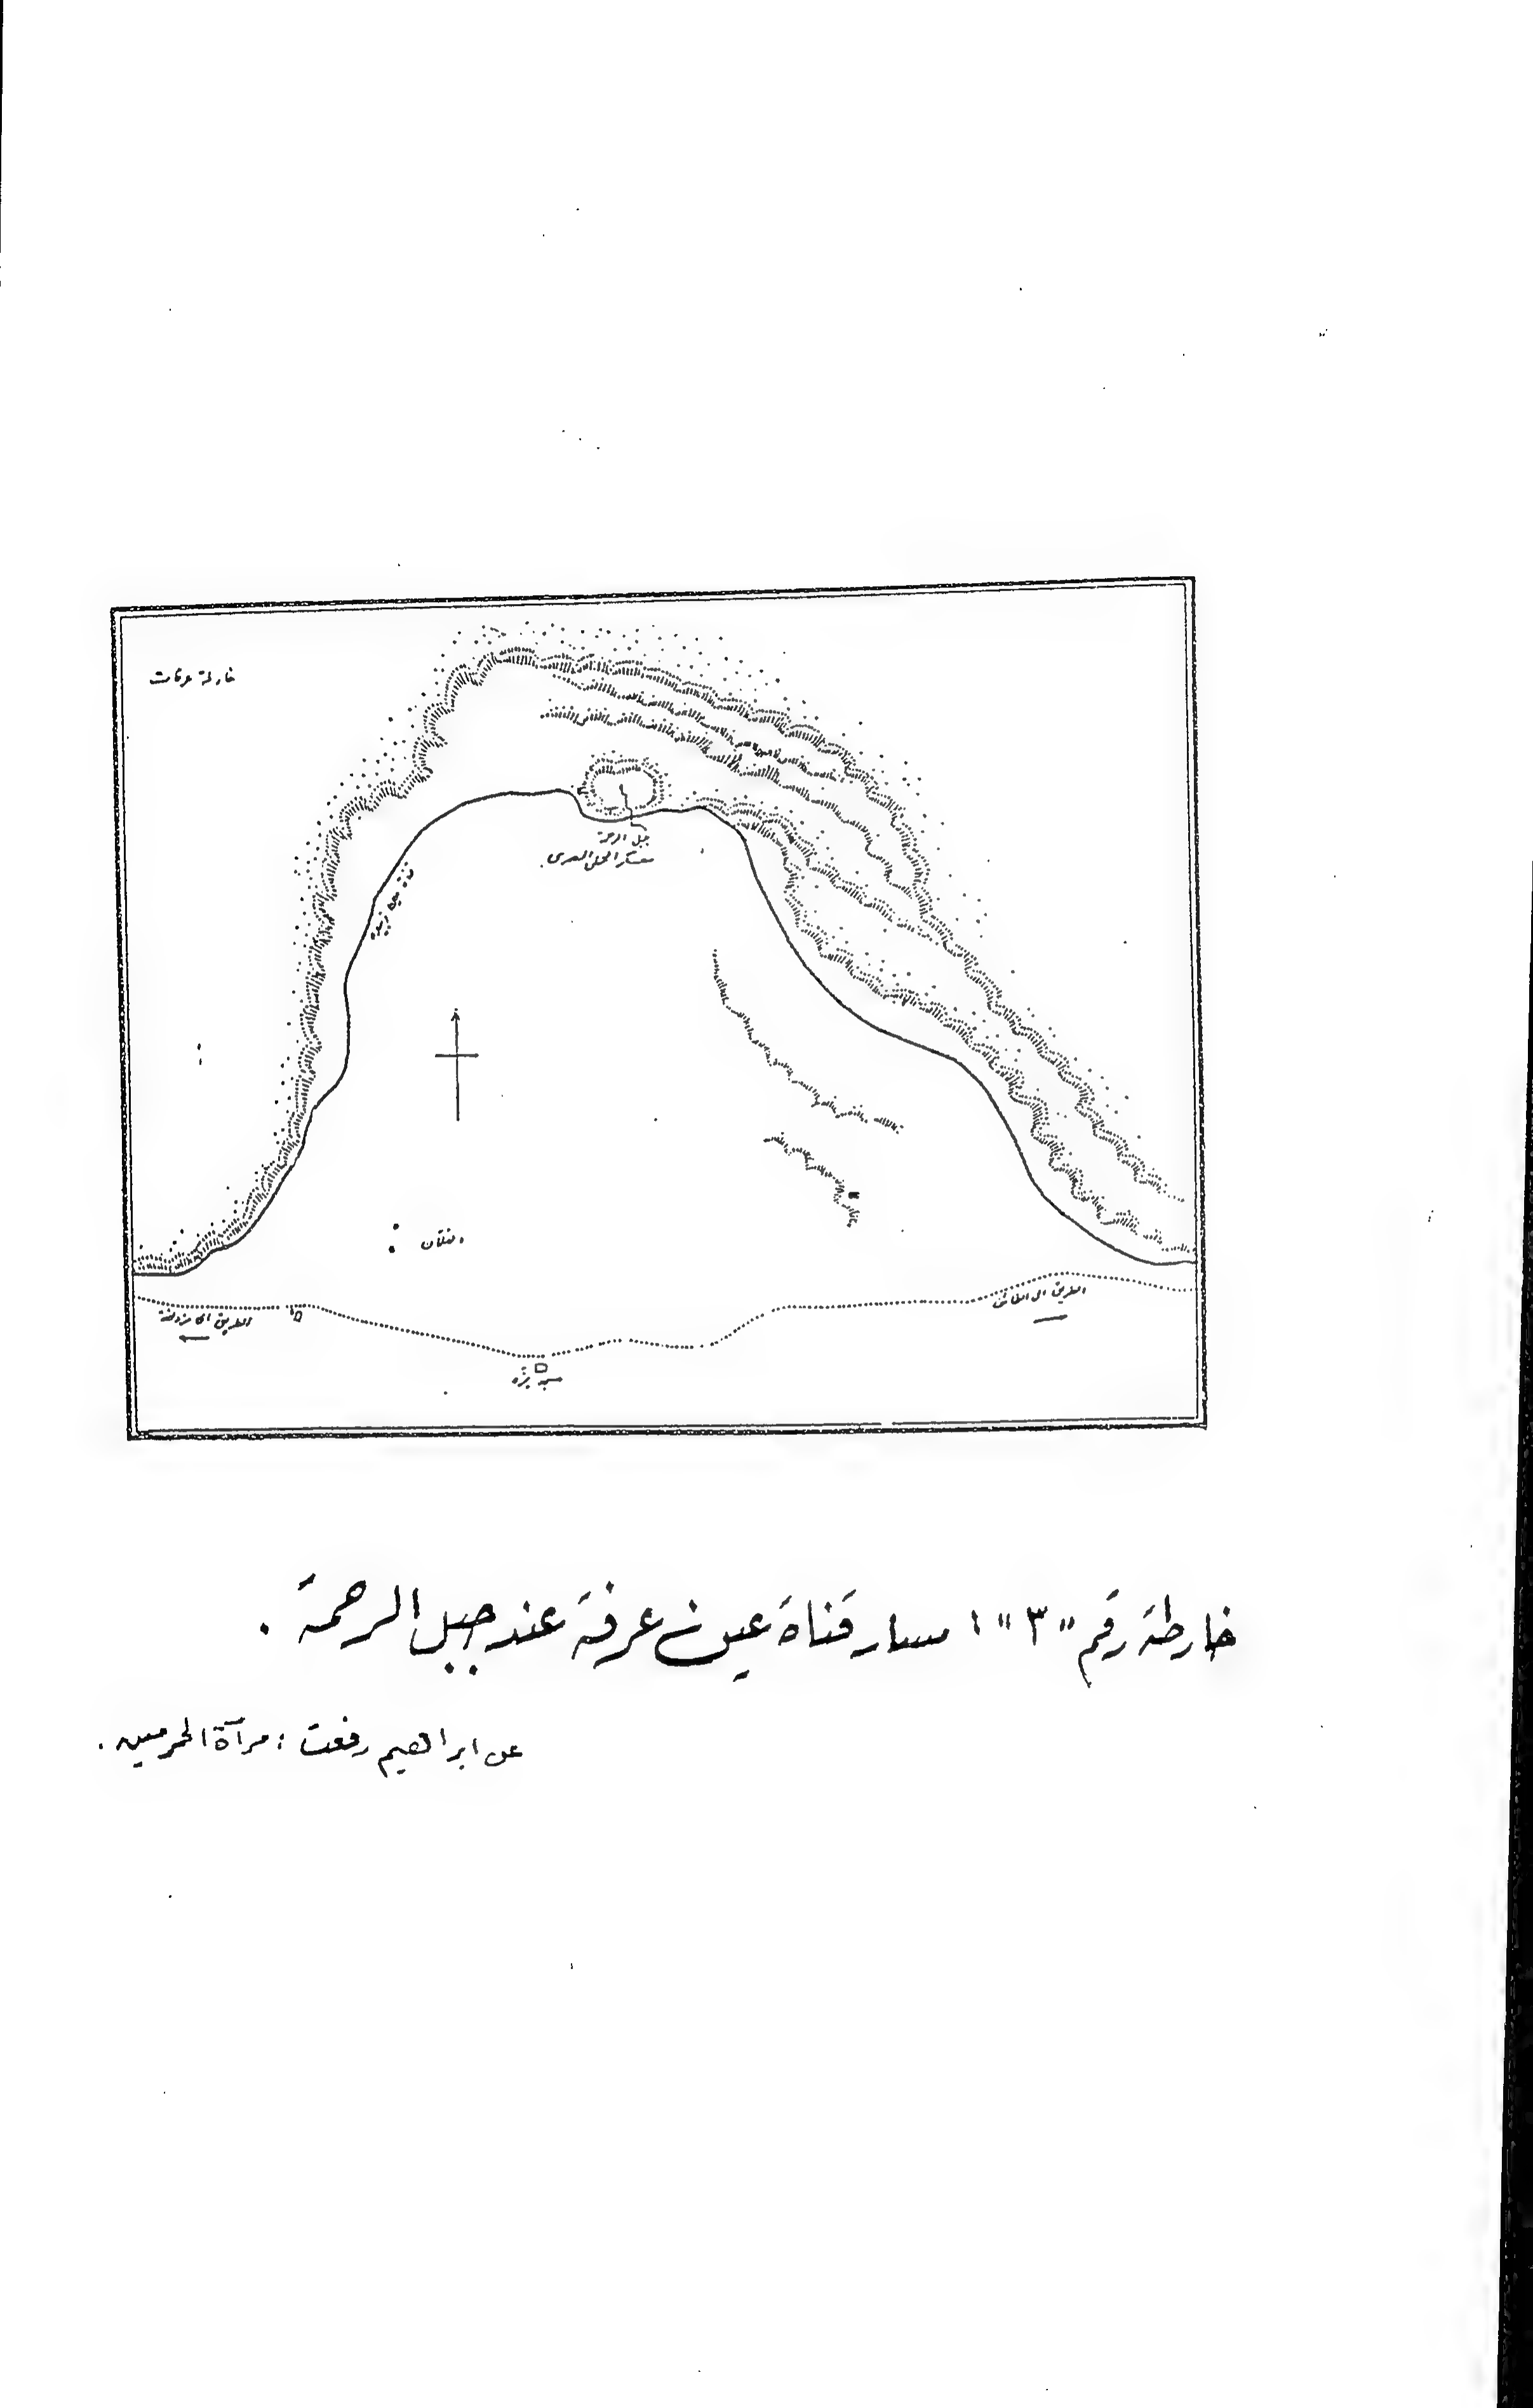 خارطة عرفات
جبل الرحمة
معسكر المحمل المصرى
قناة عين زبيدة
العلمان
الطريق الى مزدلفة
الطريق الى الطائف
مسجد نمرة
خارطة رقم "٣" : مسار قناة عين عرفة عند جبل الرحمة .
عن ابراهيم رفعت : مرآة الحرمين .